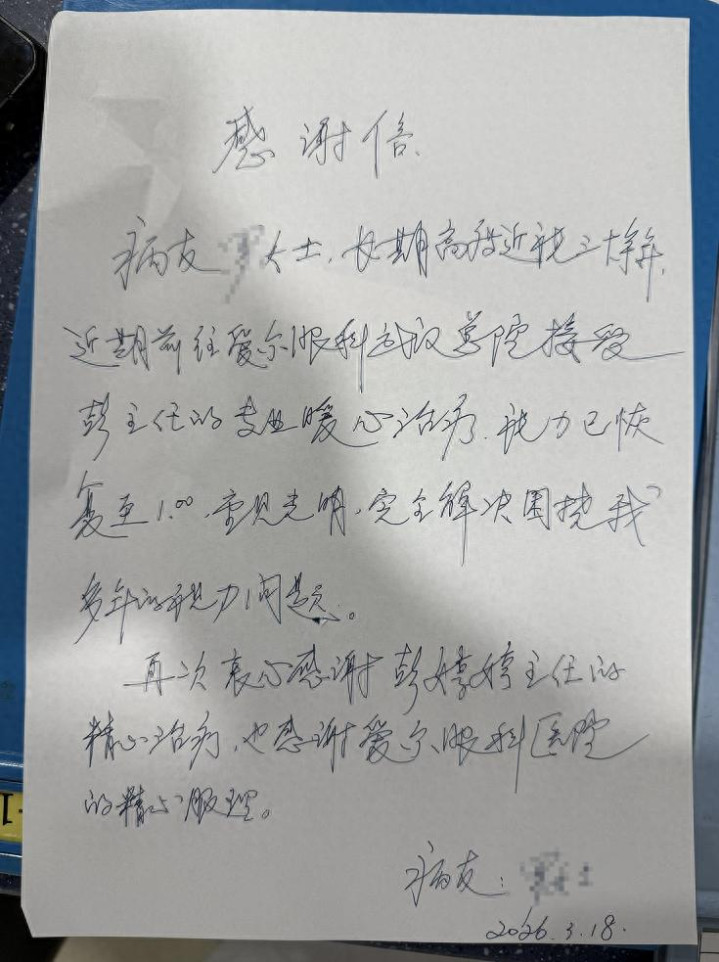 感谢信
病友 女士,长期高度近视三十余年,
近期前往爱尔眼科武汉总院接受
彭主任的专业暖心治疗,视力已恢
复至1.00,重见光明,完全解决困扰我
多年的视力问题。
再次衷心感谢彭婷婷主任的
精心治疗,也感谢爱尔眼科医院
的精心服理。
病友: 女士
2026.3.18.